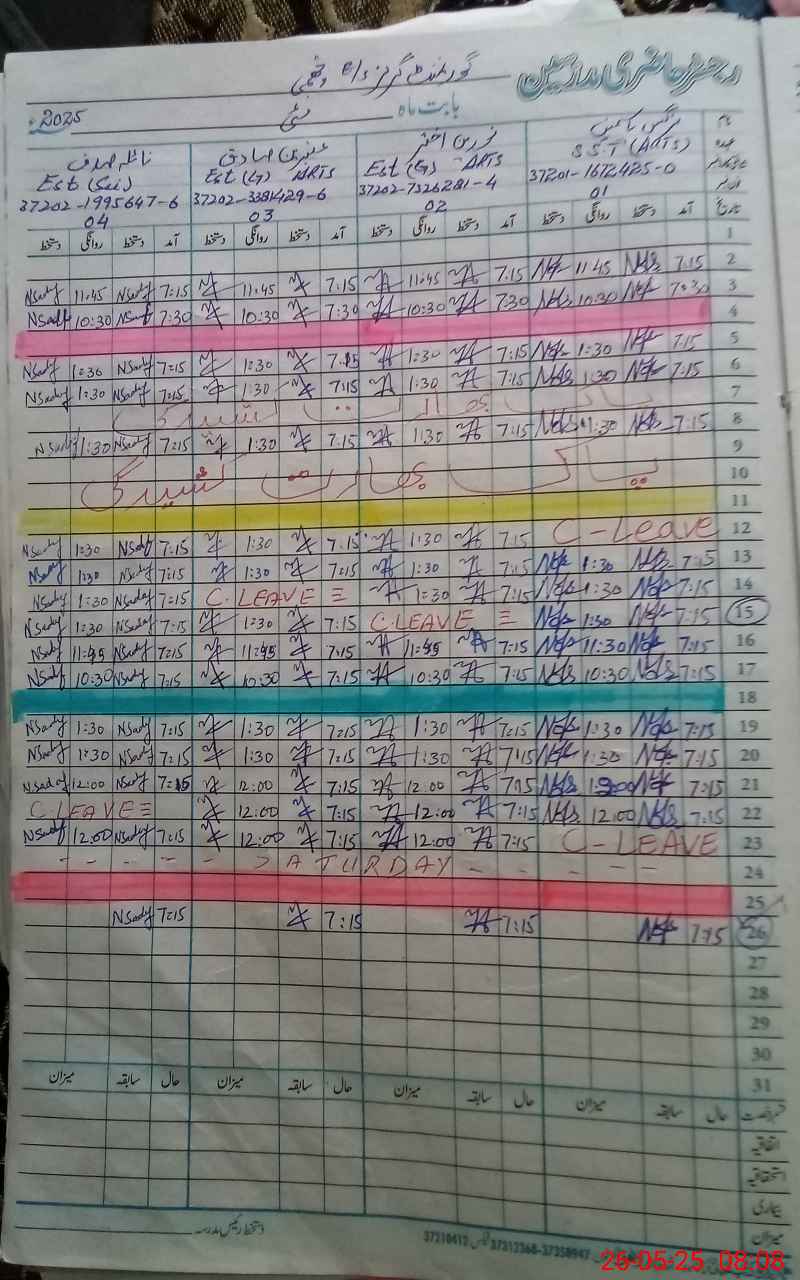 رجسٹر حاضری مدرسین
گورنمنٹ گرلز
2025ء مئی بابت ماہ
نائلہ صدف عنبرین صادق نورین اختر نرگس یاسمین نام
Est (Sci) Est (G) ARTS Est (G) ARTS SST (ARTS) عہدہ
37202-1995647-6 37202-3381429-6 37202-7326281-4 37201-1672425-0
04 03 02 01
دستخط روانگی دستخط آمد دستخط روانگی دستخط آمد دستخط روانگی دستخط آمد دستخط روانگی دستخط آمد تاریخ
1
Nsadf 11:45 Nsadf 7:15 11:45 7:15 11:45 7:15 11:45 7:15 2
Nsadf 10:30 Nsadf 7:30 10:30 7:30 10:30 7:30 10:30 7:30 3
4
Nsadf 1:30 Nsadf 7:15 1:30 7:15 1:30 7:15 1:30 7:15 5
Nsadf 1:30 Nsadf 7:15 1:30 7:15 1:30 7:15 1:30 7:15 6
پاک بھارت کشیدگی 7
Nsadf 1:30 Nsadf 7:15 1:30 7:15 1:30 7:15 1:30 7:15 8
پاک بھارت کشیدگی 9
10
11
Nsadf 1:30 Nsadf 7:15 1:30 7:15 1:30 7:15 C-Leave 12
Nsadf 1:30 Nsadf 7:15 1:30 7:15 1:30 7:15 1:30 7:15 13
Nsadf 1:30 Nsadf 7:15 C.LEAVE 1:30 7:15 1:30 7:15 14
Nsadf 1:30 Nsadf 7:15 1:30 7:15 C.LEAVE 1:30 7:15 15
Nsadf 11:45 Nsadf 7:15 11:45 7:15 11:45 7:15 11:30 7:15 16
Nsadf 10:30 Nsadf 7:15 10:30 7:15 10:30 7:15 10:30 7:15 17
18
Nsadf 1:30 Nsadf 7:15 1:30 7:15 1:30 7:15 1:30 7:15 19
Nsadf 1:30 Nsadf 7:15 1:30 7:15 1:30 7:15 1:30 7:15 20
Nsadf 12:00 Nsadf 7:15 12:00 7:15 12:00 7:15 7:15 21
C-LEAVE 12:00 7:15 12:00 7:15 12:00 7:15 22
Nsadf 12:00 Nsadf 7:15 12:00 7:15 12:00 7:15 C-LEAVE 23
- - - - - SATURDAY - - - - - 24
25
Nsadf 7:15 7:15 7:15 7:15 26
27
28
29
30
31
میزان سابقہ حال میزان سابقہ حال میزان سابقہ حال میزان سابقہ حال قسم رخصت
اتفاقیہ
استحقاقیہ
بیماری
میزان
دستخط رئیس مدرسہ
37210412 فیکس 37312368-37358947
26-05-25 08:08